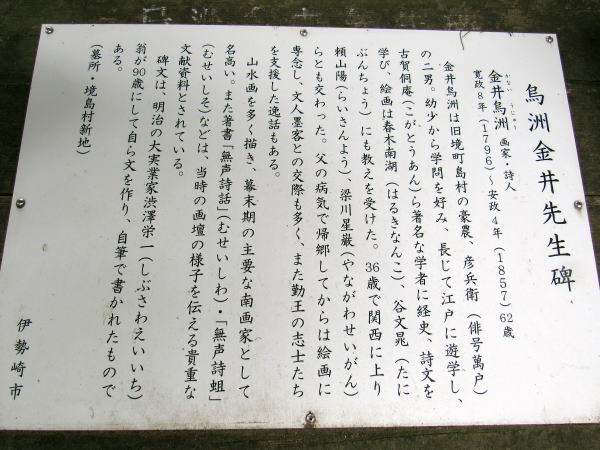 烏洲金井先生碑
かない うじゅう
金井烏洲 画家・詩人
寛政8年(1796)~安政4年(1857)62歳
金井烏洲は旧境町島村の豪農、彦兵衛(俳号萬戸)
の二男。幼少から学問を好み、長じて江戸に遊学し、
古賀侗庵(こがとうあん)ら著名な学者に経史、詩文を
学び、絵画は春木南湖(はるきなんこ)、谷文晁(たに
ぶんちょう)にも教えを受けた。36歳で関西に上り
頼山陽(らいさんよう)、梁川星巌(やながわせいがん)
らとも交わった。父の病気で帰郷してからは絵画に
専念し、文人墨客との交際も多く、また勤王の志士たち
を支援した逸話もある。
山水画を多く描き、幕末期の主要な南画家として
名高い。また著書「無声詩話」(むせいしわ)・「無声詩蛆」
(むせいしそ)などは、当時の画壇の様子を伝える貴重な
文献資料とされている。
碑文は、明治の大実業家渋澤栄一(しぶさわえいいち)
翁が90歳にして自ら文を作り、自筆で書かれたもので
ある。
(墓所・境島村新地)
伊勢崎市